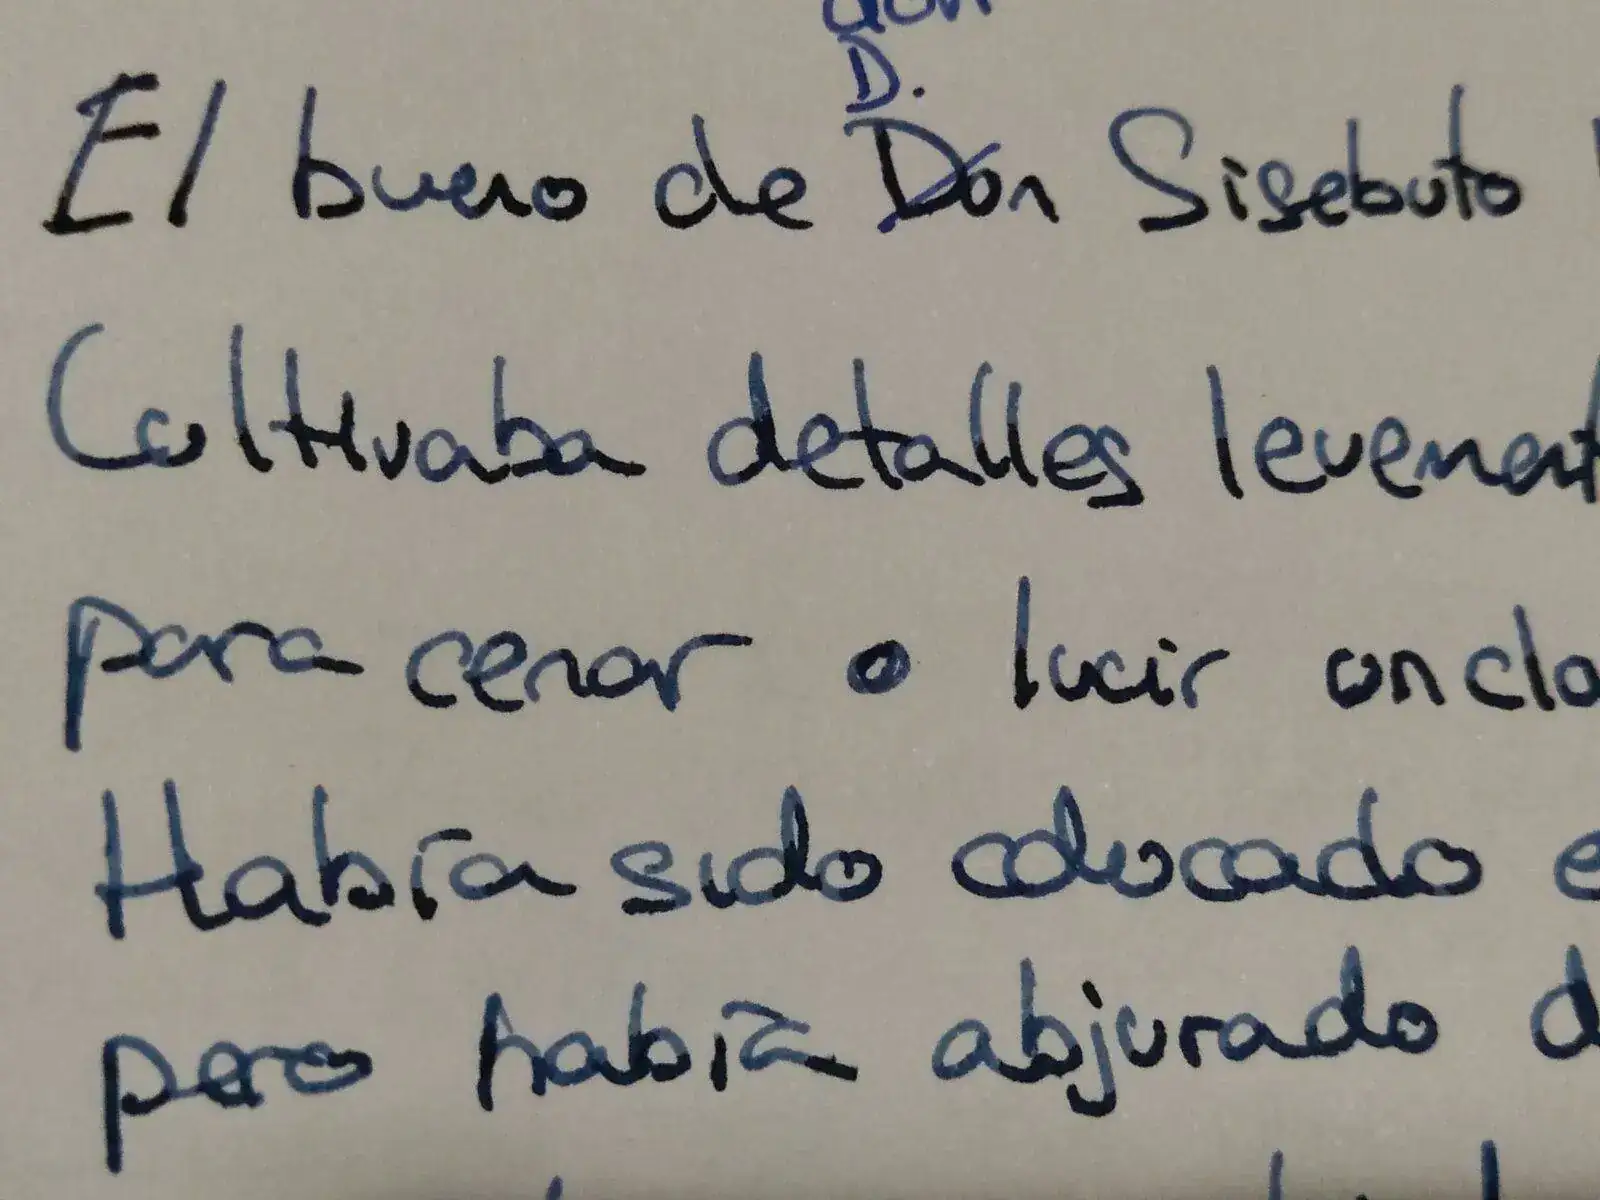 don
D.
El bueno de Don Sisebuto
Cultivaba detalles levement
para cenar o lucir
Había sido colocado e
pero había abjurado d